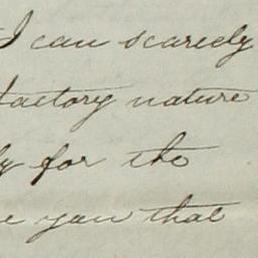 I can scarcely
factory nature
for the
you that